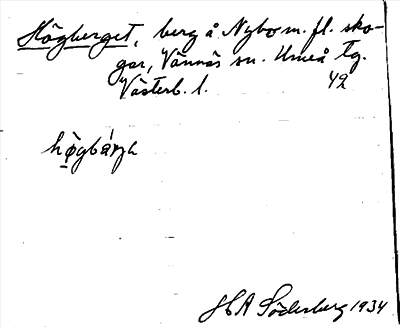 Högberget, berg å Nybo m. fl. sko-
gar, Vännäs sn. Umeå tg.
Västerb. l. 42
høgbárjɛ
HA Söderberg 1934